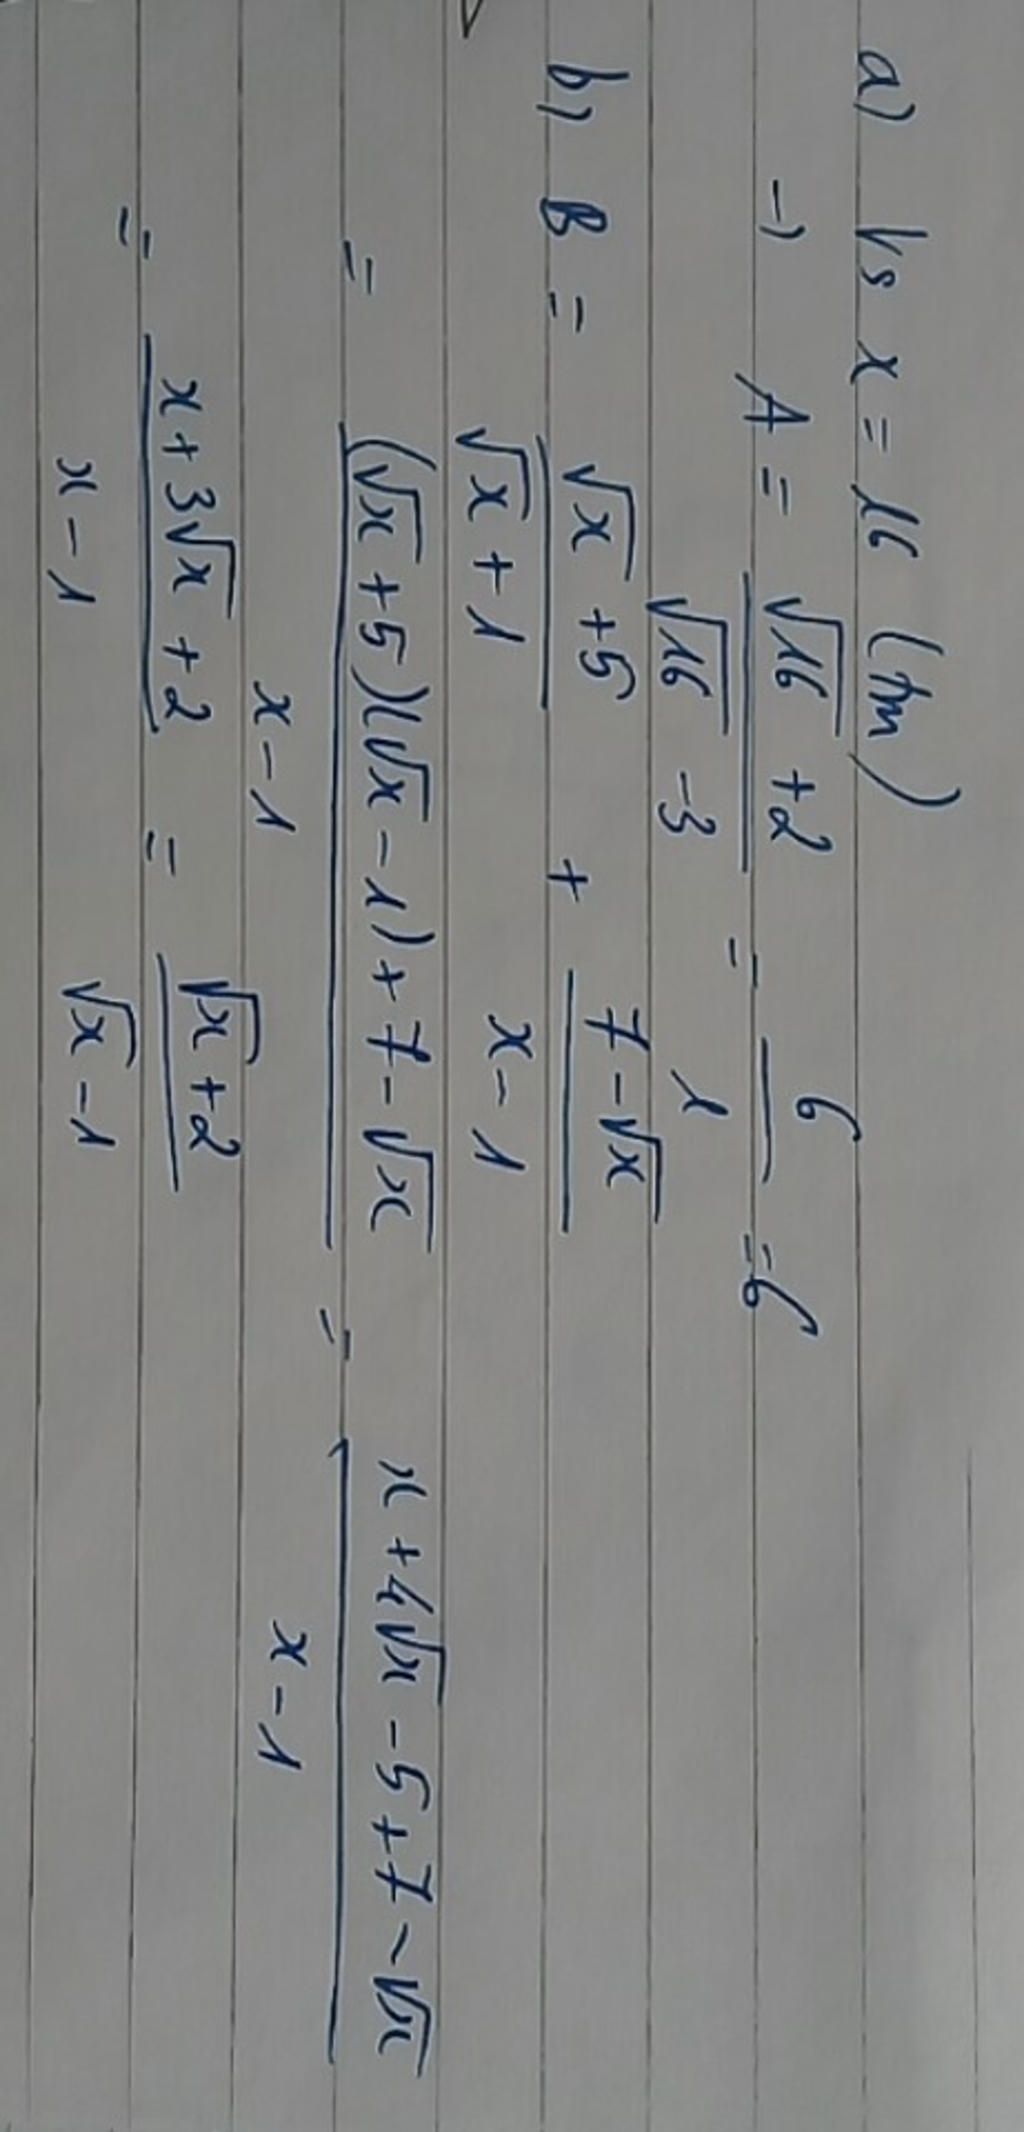 a) Vs x = 16 (tm)
→ A = (√16 + 2)/(√16 - 3) = 6/1 = 6
b) B = (√x + 5)/(√x + 1) + (7 - √x)/(x - 1)
= ((√x + 5)(√x - 1) + 7 - √x)/(x - 1) = (x + 4√x - 5 + 7 - √x)/(x - 1)
= (x + 3√x + 2)/(x - 1) = (√x + 2)/(√x - 1)